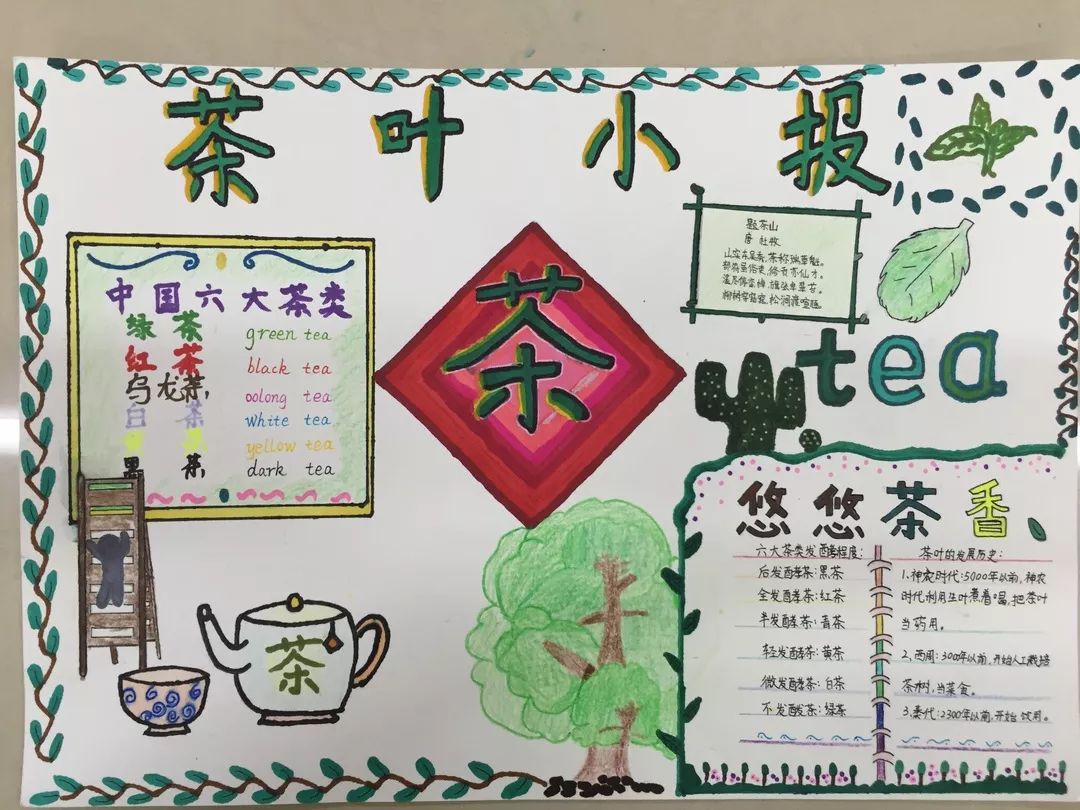 茶叶小报
中国六大茶类
绿茶 green tea
红茶 black tea
乌龙茶 oolong tea
白茶 white tea
黄茶 yellow tea
黑茶 dark tea
茶
题茶山
唐 杜牧
山实东吴秀,茶称瑞草魁。
剖符虽俗吏,修贡亦仙才。
溪尽停蛮棹,旗张卓翠苔。
柳村穿窈窕,松涧渡喧
tea
茶
悠悠茶香
六大茶类发酵程度:
后发酵茶:黑茶
全发酵茶:红茶
半发酵茶:青茶
轻发酵茶:黄茶
微发酵茶:白茶
不发酸茶:绿茶
茶叶的发展历史:
1.神农时代:5000年以前,神农
时代利用生叶煮着喝,把茶叶
当药用。
2,西周:300年以前,开始人工栽培
茶树,当菜食。
3.秦代:2300年以前,开始饮用。